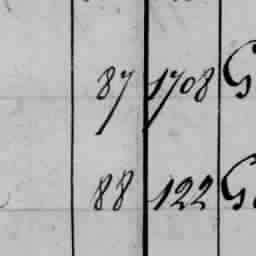 87 1708 G
88 122 G